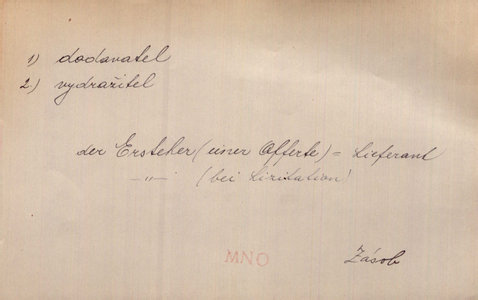 1) dodavatel
2.) vydražitel
der Ersteher (einer Offerte) = Lieferant
—„— (bei Lizitation!
MNO
Zásob